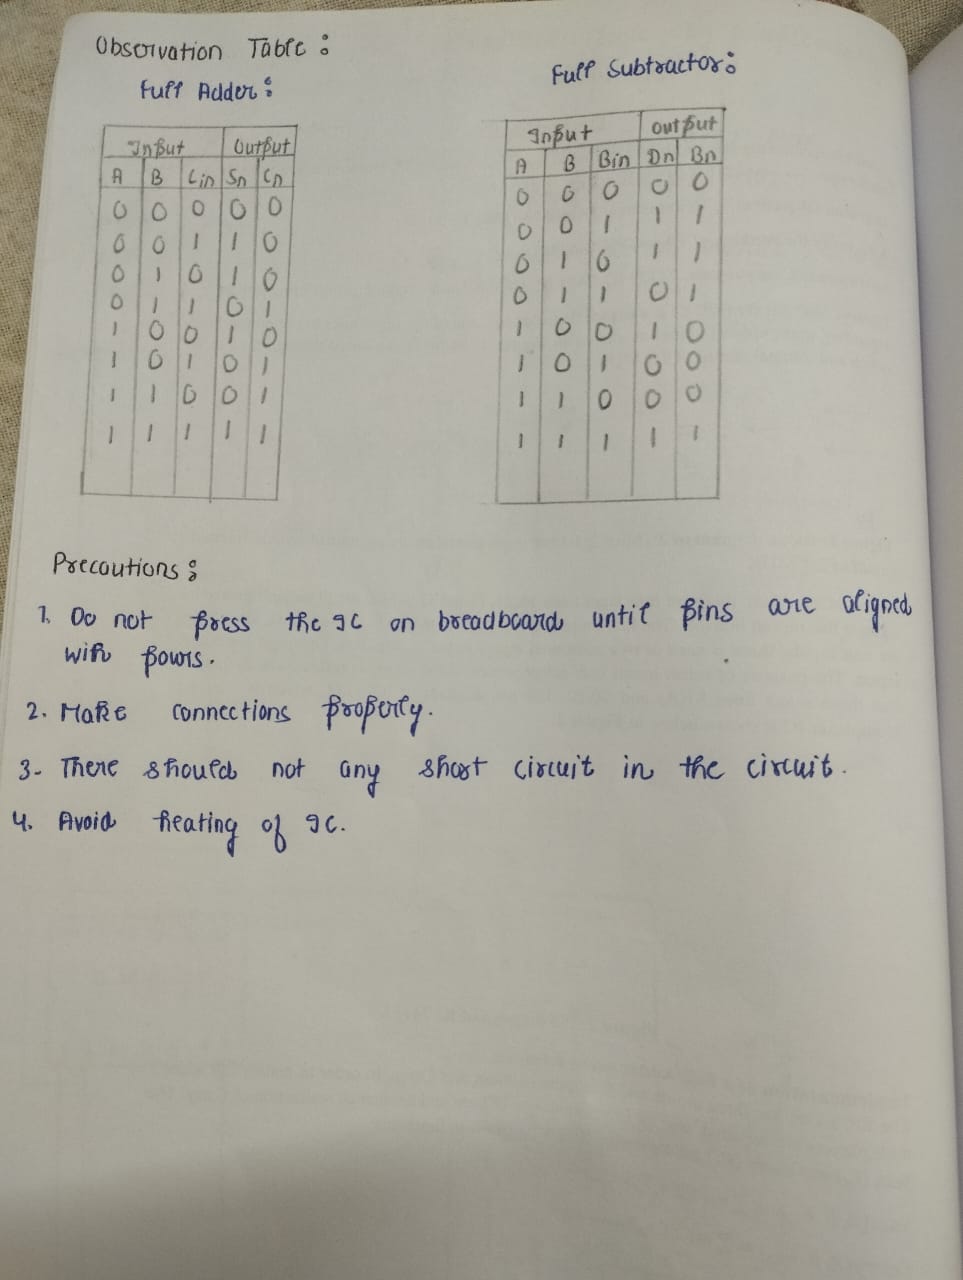 Observation Table :
Full Adder :
Input Output
A B Cin Sn Cn
0 0 0 0 0
0 0 1 1 0
0 1 0 1 0
0 1 1 0 1
1 0 0 1 0
1 0 1 0 1
1 1 0 0 1
1 1 1 1 1
Full Subtractor :
Input Output
A B Bin Dn Bn
0 0 0 0 0
0 0 1 1 1
0 1 0 1 1
0 1 1 0 1
1 0 0 1 0
1 0 1 0 0
1 1 0 0 0
1 1 1 1 1
Precautions :
1. Do not press the IC on breadboard until pins are aligned
with
2. Make connections properly.
3- There should not any short circuit in the circuit.
4. Avoid heating of IC.